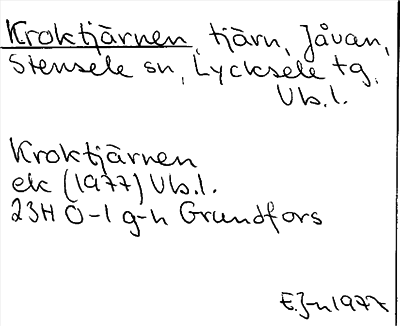 Kroktjärnen, tjärn, Jåvan,
Stensele sn, Lycksele tg.
Vb.l.
Kroktjärnen
ek (1977) Vb.l.
23H Ö-l g-h Grundfors
E.J-n 1977